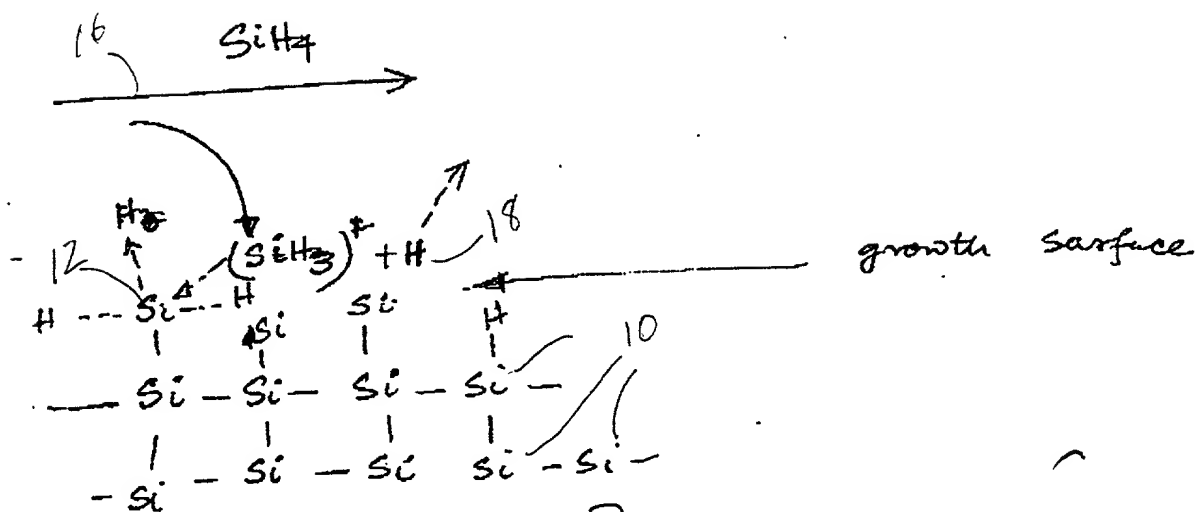 16 SiH4
H2
12 (SiH3)* + H 18 growth sarface
H --- Si --- H Si H
Si 10
— Si — Si — Si — Si —
- Si - Si — Si Si - Si -